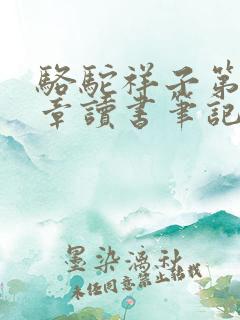 駱駝祥子第
章讀書筆記
墨染漓秋
未经同意禁止转载